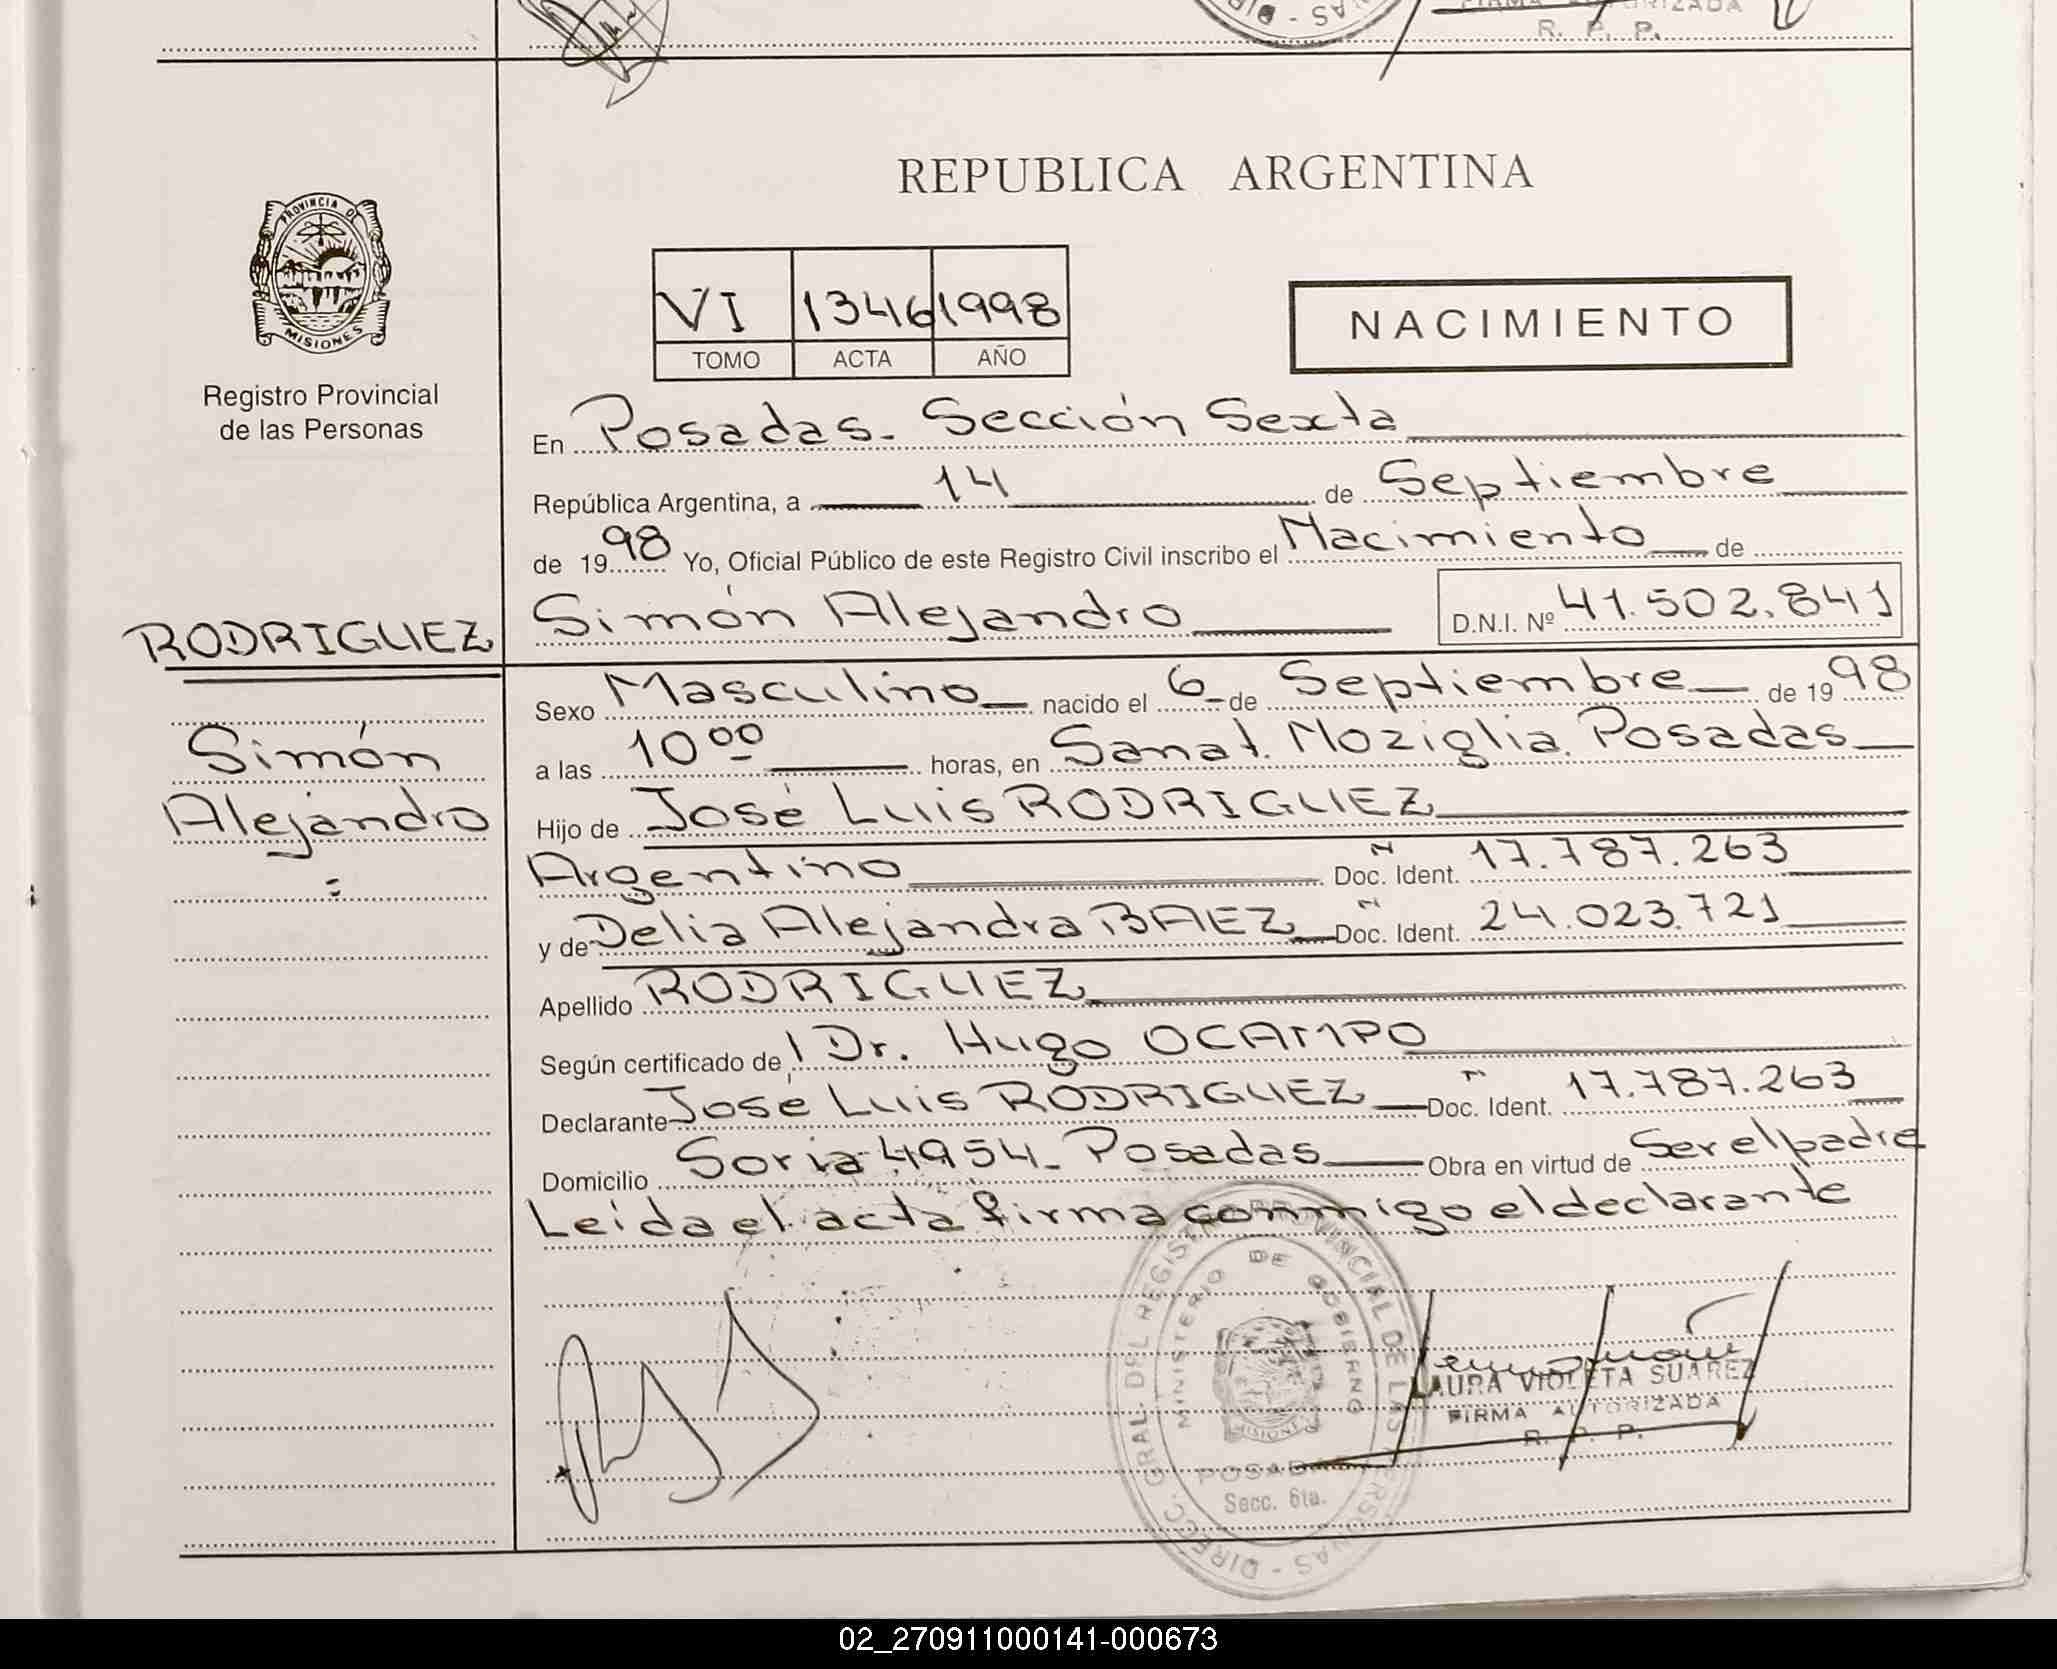 FIRMA AUTORIZADA
R. P. P.
PROVINCIA DE
MISIONES
Registro Provincial
de las Personas
REPUBLICA ARGENTINA
VI 1346 1998
TOMO ACTA AÑO
NACIMIENTO
En Posadas. Sección Sexta
República Argentina, a 14 de Septiembre
de 1998 Yo, Oficial Público de este Registro Civil inscribo el Nacimiento de
Simón Alejandro D.N.I. Nº 41.502.841
RODRIGUEZ
Simón
Alejandro
Sexo Masculino nacido el 6 de Septiembre de 1998
a las 10 00 horas, en Sanat. Moziglia. Posadas
Hijo de José Luis RODRIGUEZ
Argentino Doc. Ident. 17.787.263
y de Delia Alejandra BAEZ Doc. Ident. 24.023.721
Apellido RODRIGUEZ
Según certificado de l Dr. Hugo OCAMPO
Declarante José Luis RODRIGUEZ Doc. Ident. 17.787.263
Domicilio Soria 4954. Posadas Obra en virtud de Ser el padre
Leída el acta firma conmigo el declarante
DIRECC. GRAL. DEL REGISTRO PROVINCIAL DE LAS PERSONAS
MINISTERIO DE GOBIERNO
MISIONES
POSADAS
Secc. 6ta.
LAURA VIOLETA SUAREZ
FIRMA AUTORIZADA
R. P. P.
02_270911000141-000673